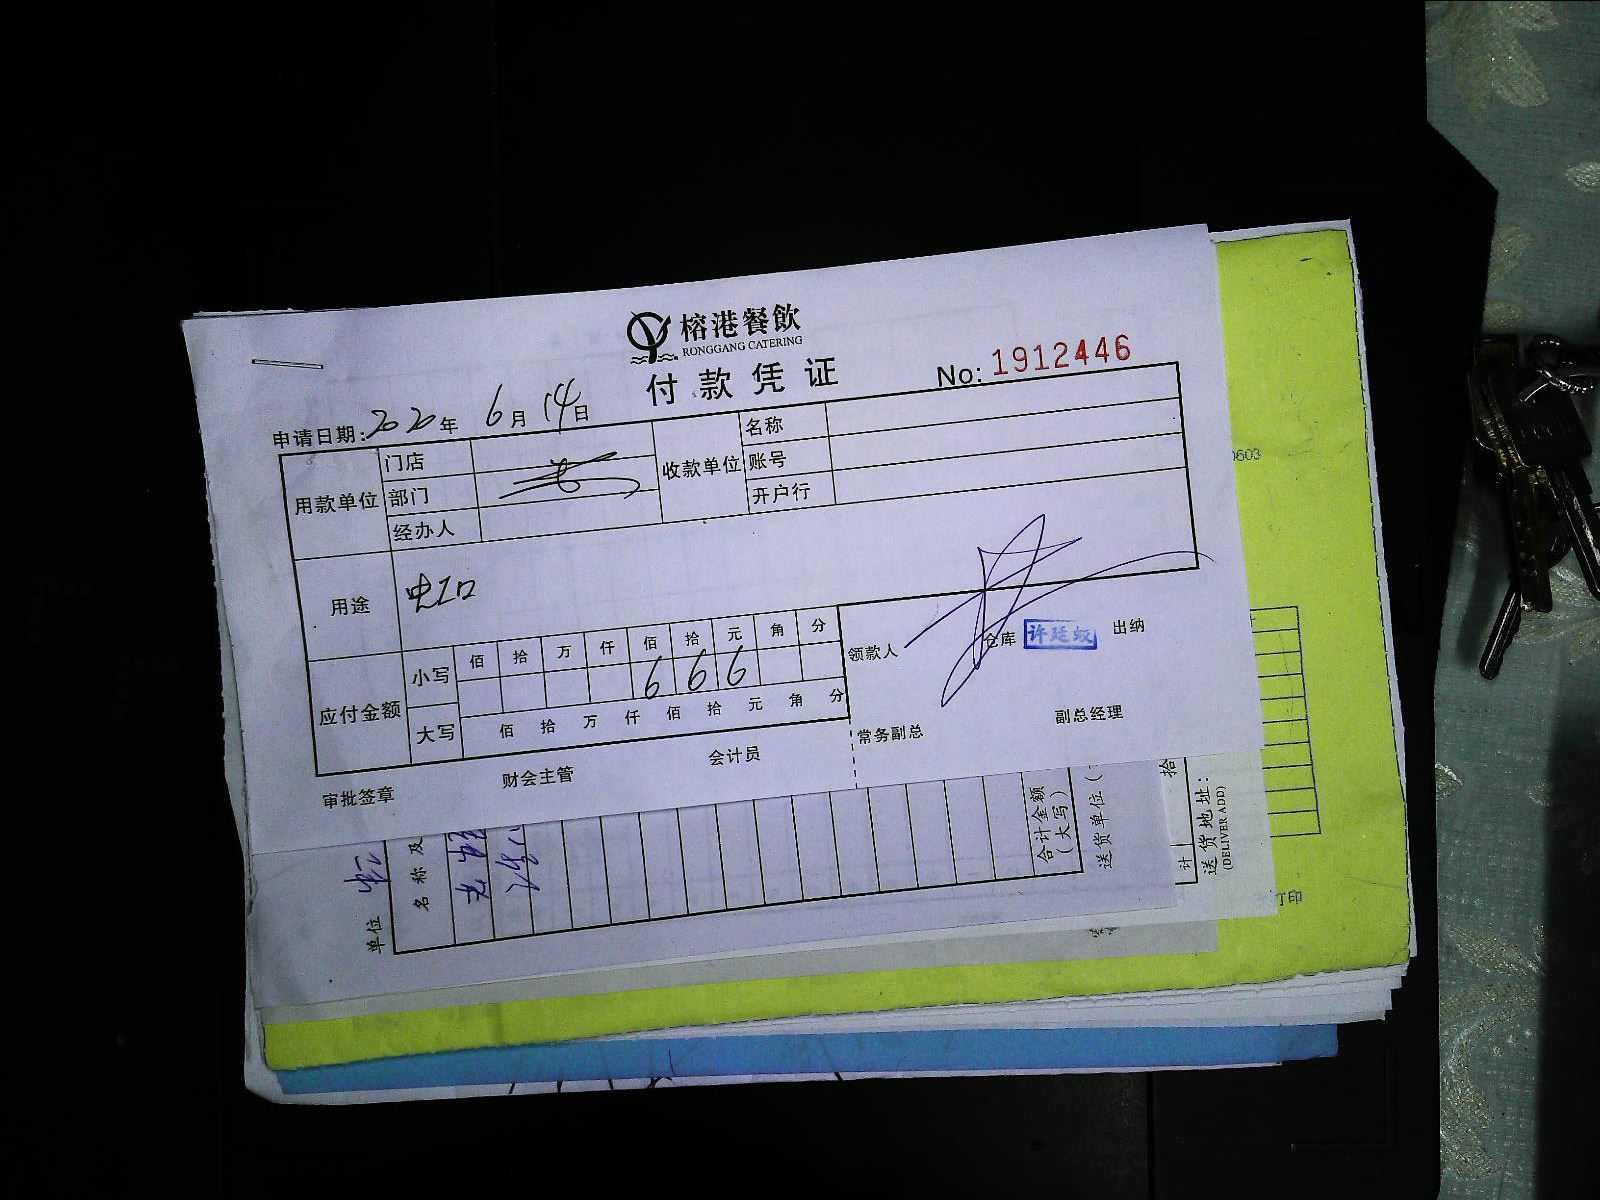 榕港餐飲
RONGGANG CATERING
付款凭证
No: 1912446
申请日期: 2020年 6月 14日
用款单位 门店 收款单位 名称
部门 账号
经办人 开户行
用途
应付金额 小写 佰 拾 万 仟 佰 拾 元 角 分
6 6 6
大写 佰 拾 万 仟 佰 拾 元 角 分
领款人 仓库 许廷蛟 出纳
审批签章 财会主管 会计员 常务副总 副总经理
单位
名称及
合计金额
(大写)
送货单位(
拾
计
送货地址:
(DELIVER ADD)
0603
打印